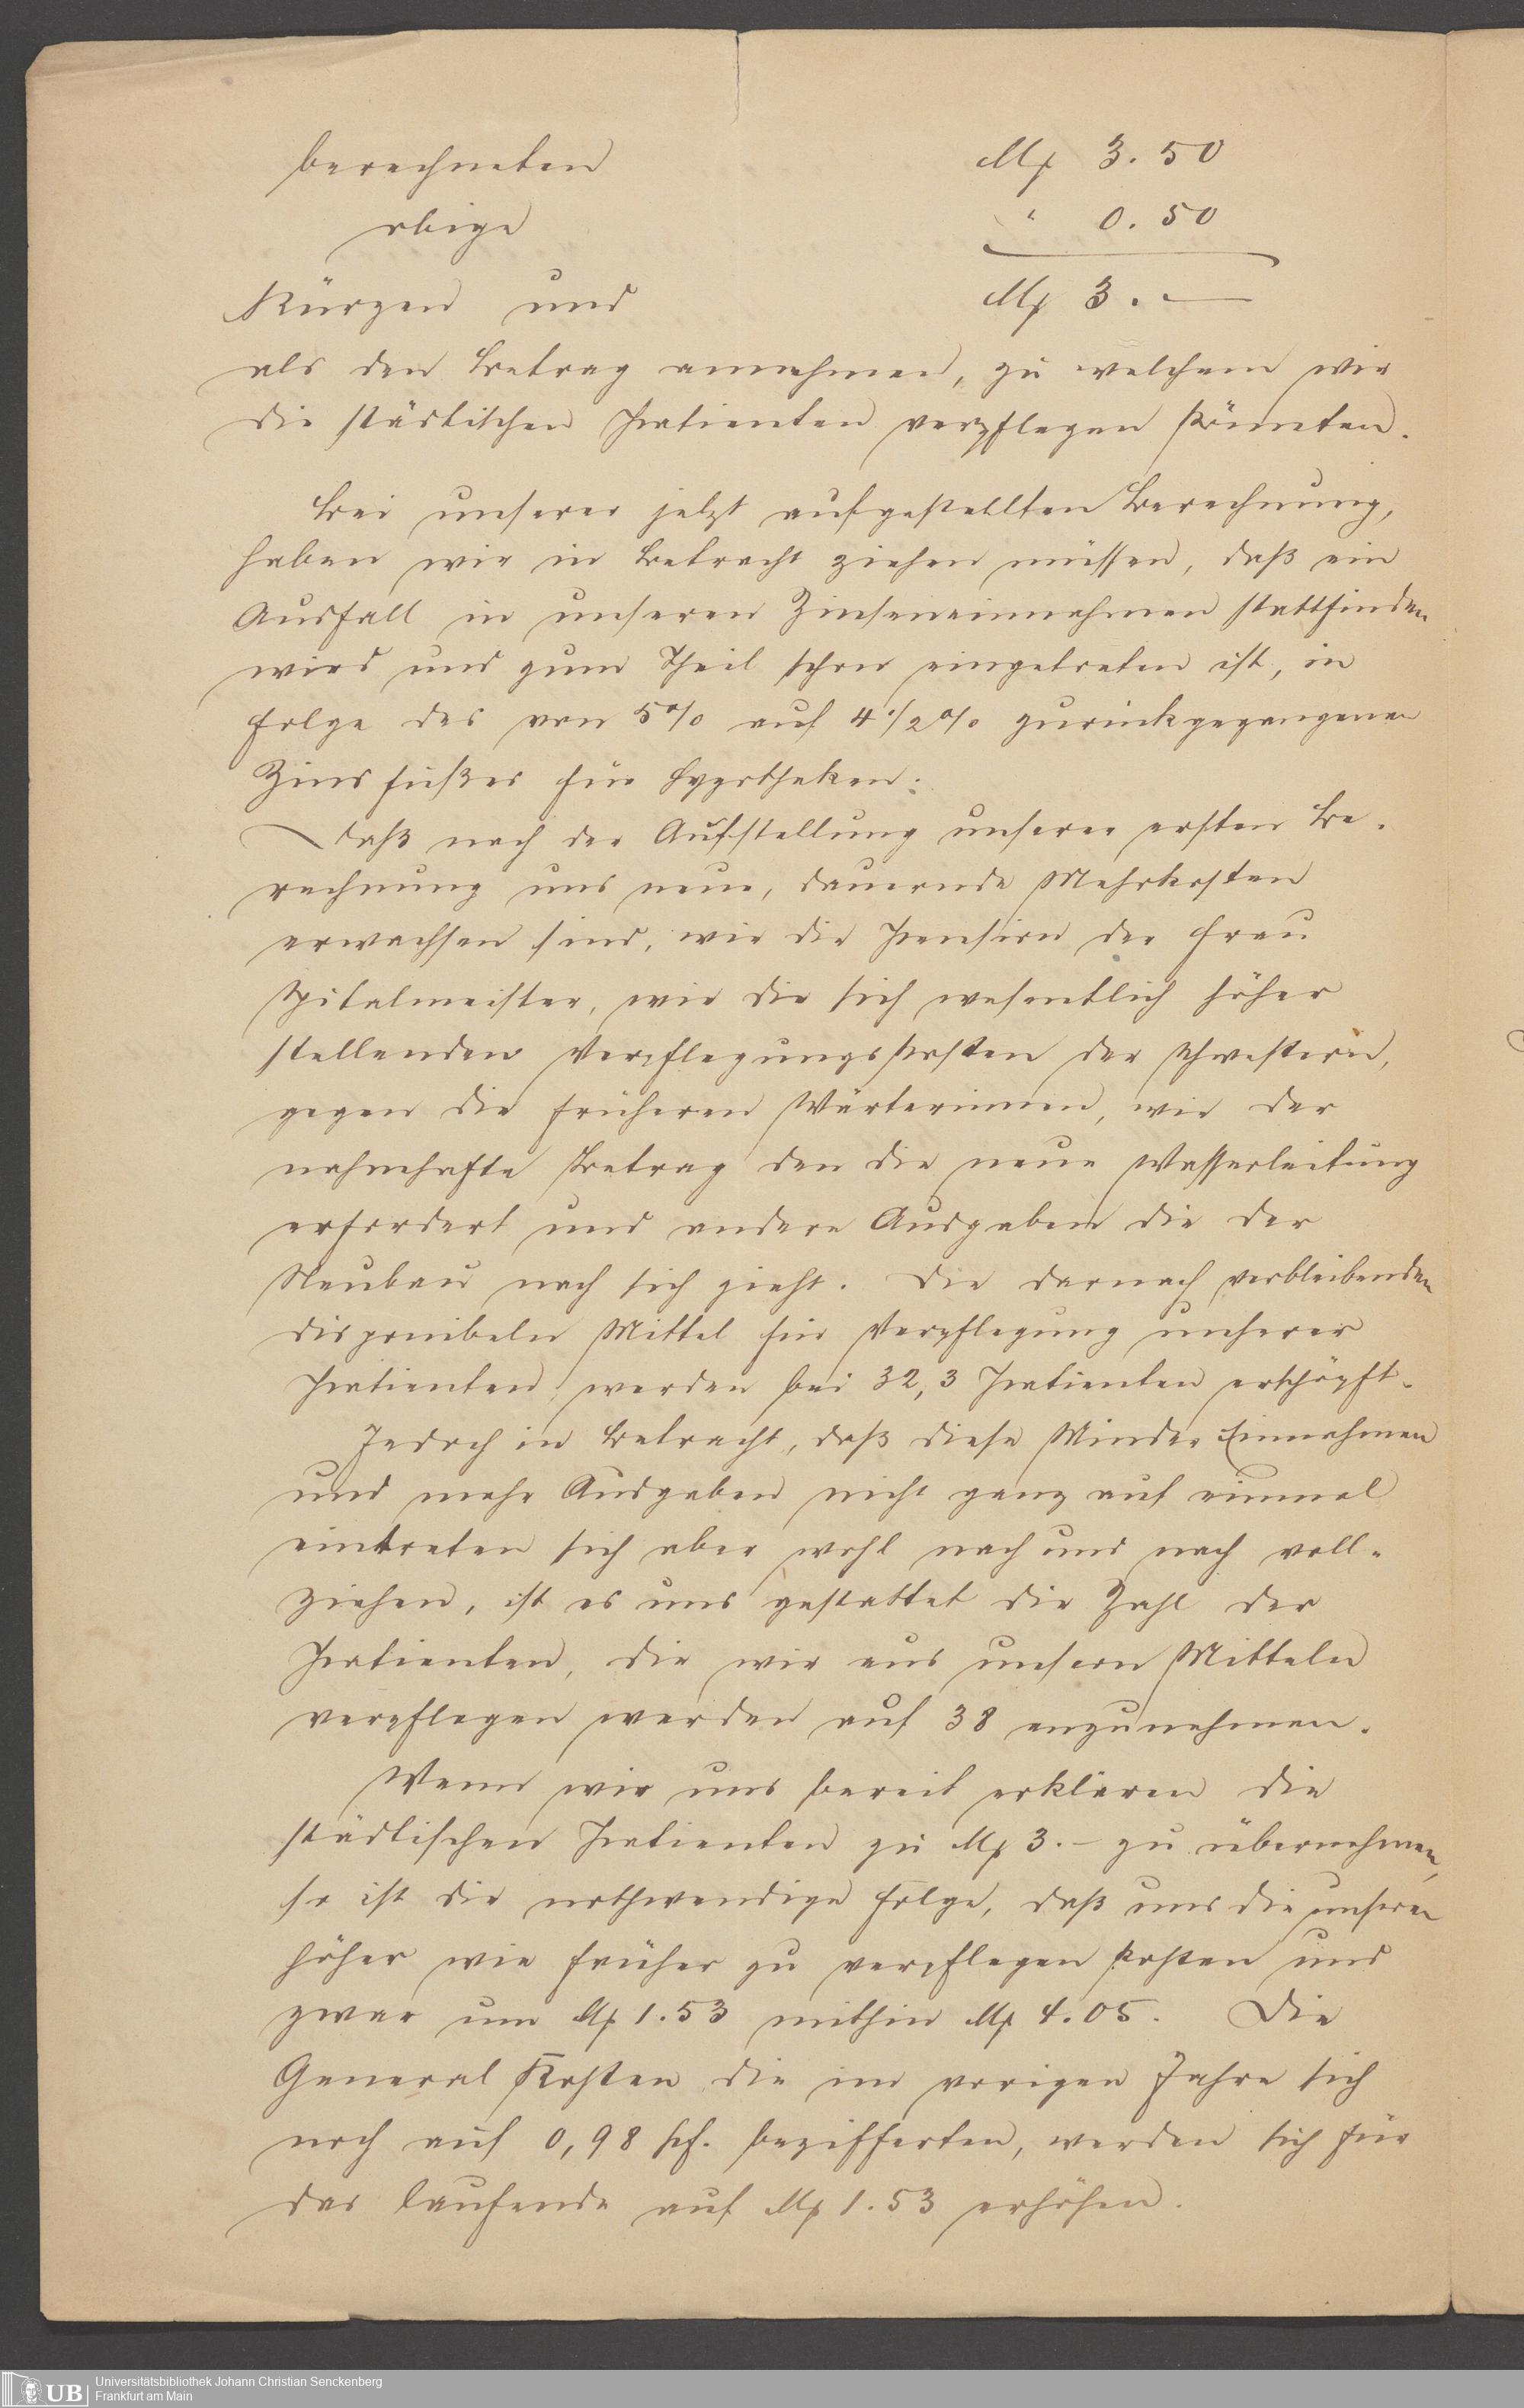 berechneten Mk 3.50
obige " 0.50
Kürzen und Mk 3.—
als den Betrag annehmen, zu welchem wir
die städtischen Patienten verpflegen könnten.
Bei unserer jetzt aufgestellten Berechnung,
haben wir in Betracht ziehen müssen, daß ein
Ausfall in unseren Zinseneinnahmen stattfinden
wird und zum Theil schon eingetreten ist, in
Folge des von 5% auf 4 1/2% zurückgegangenen
Zinsfußes für Hypotheken;
daß nach der Aufstellung unserer ersten Be-
rechnung uns neue, dauernde Mehrkosten
erwachsen sind, wie die Pension der Frau
Spitalmeister, wie die sich wesentlich höher
stellenden Verpflegungskosten der Schwestern,
gegen die früheren Wärterinnen, wie der
nahmhafte Betrag den die neue Wasserleitung
erfordert und andere Ausgaben die der
Neubau nach sich zieht. Die darnach verbleibenden
disponibeln Mittel für Verpflegung unserer
Patienten werden bei 32,3 Patienten erschöpft.
Jedoch in Betracht, daß diese Minder Einnahmen
und mehr Ausgaben nicht ganz auf einmal
eintreten sich aber wohl nach und nach voll-
ziehen, ist es uns gestattet die Zahl der
Patienten, die wir aus unsern Mitteln
verpflegen werden auf 38 anzunehmen.
Wenn wir uns bereit erklären die
städtischen Patienten zu Mk 3.— zu übernehmen,
so ist die nothwendige Folge, daß uns die unseren
höher wie früher zu verpflegen kosten und
zwar um Mk 1.53 mithin Mk 4.05. Die
General Kosten die im vorigen Jahre sich
noch auf 0,98 Pf. bezifferten, werden sich für
das laufende auf Mk 1.53 erhöhen.
UB Universitätsbibliothek Johann Christian Senckenberg
Frankfurt am Main